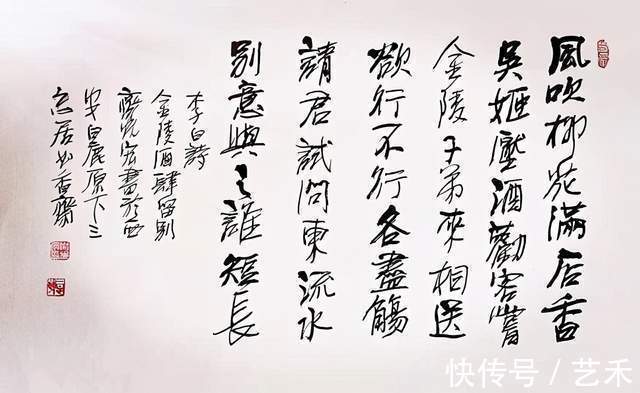 風吹柳花滿店香
吳姬壓酒勸客嘗
金陵子弟來相送
欲行不行各盡觴
請君試問東流水
別意與之誰短長
李白詩
金陵酒肆留別
宏書於西
安白鹿原下三
居香齋
快传号 / 艺禾